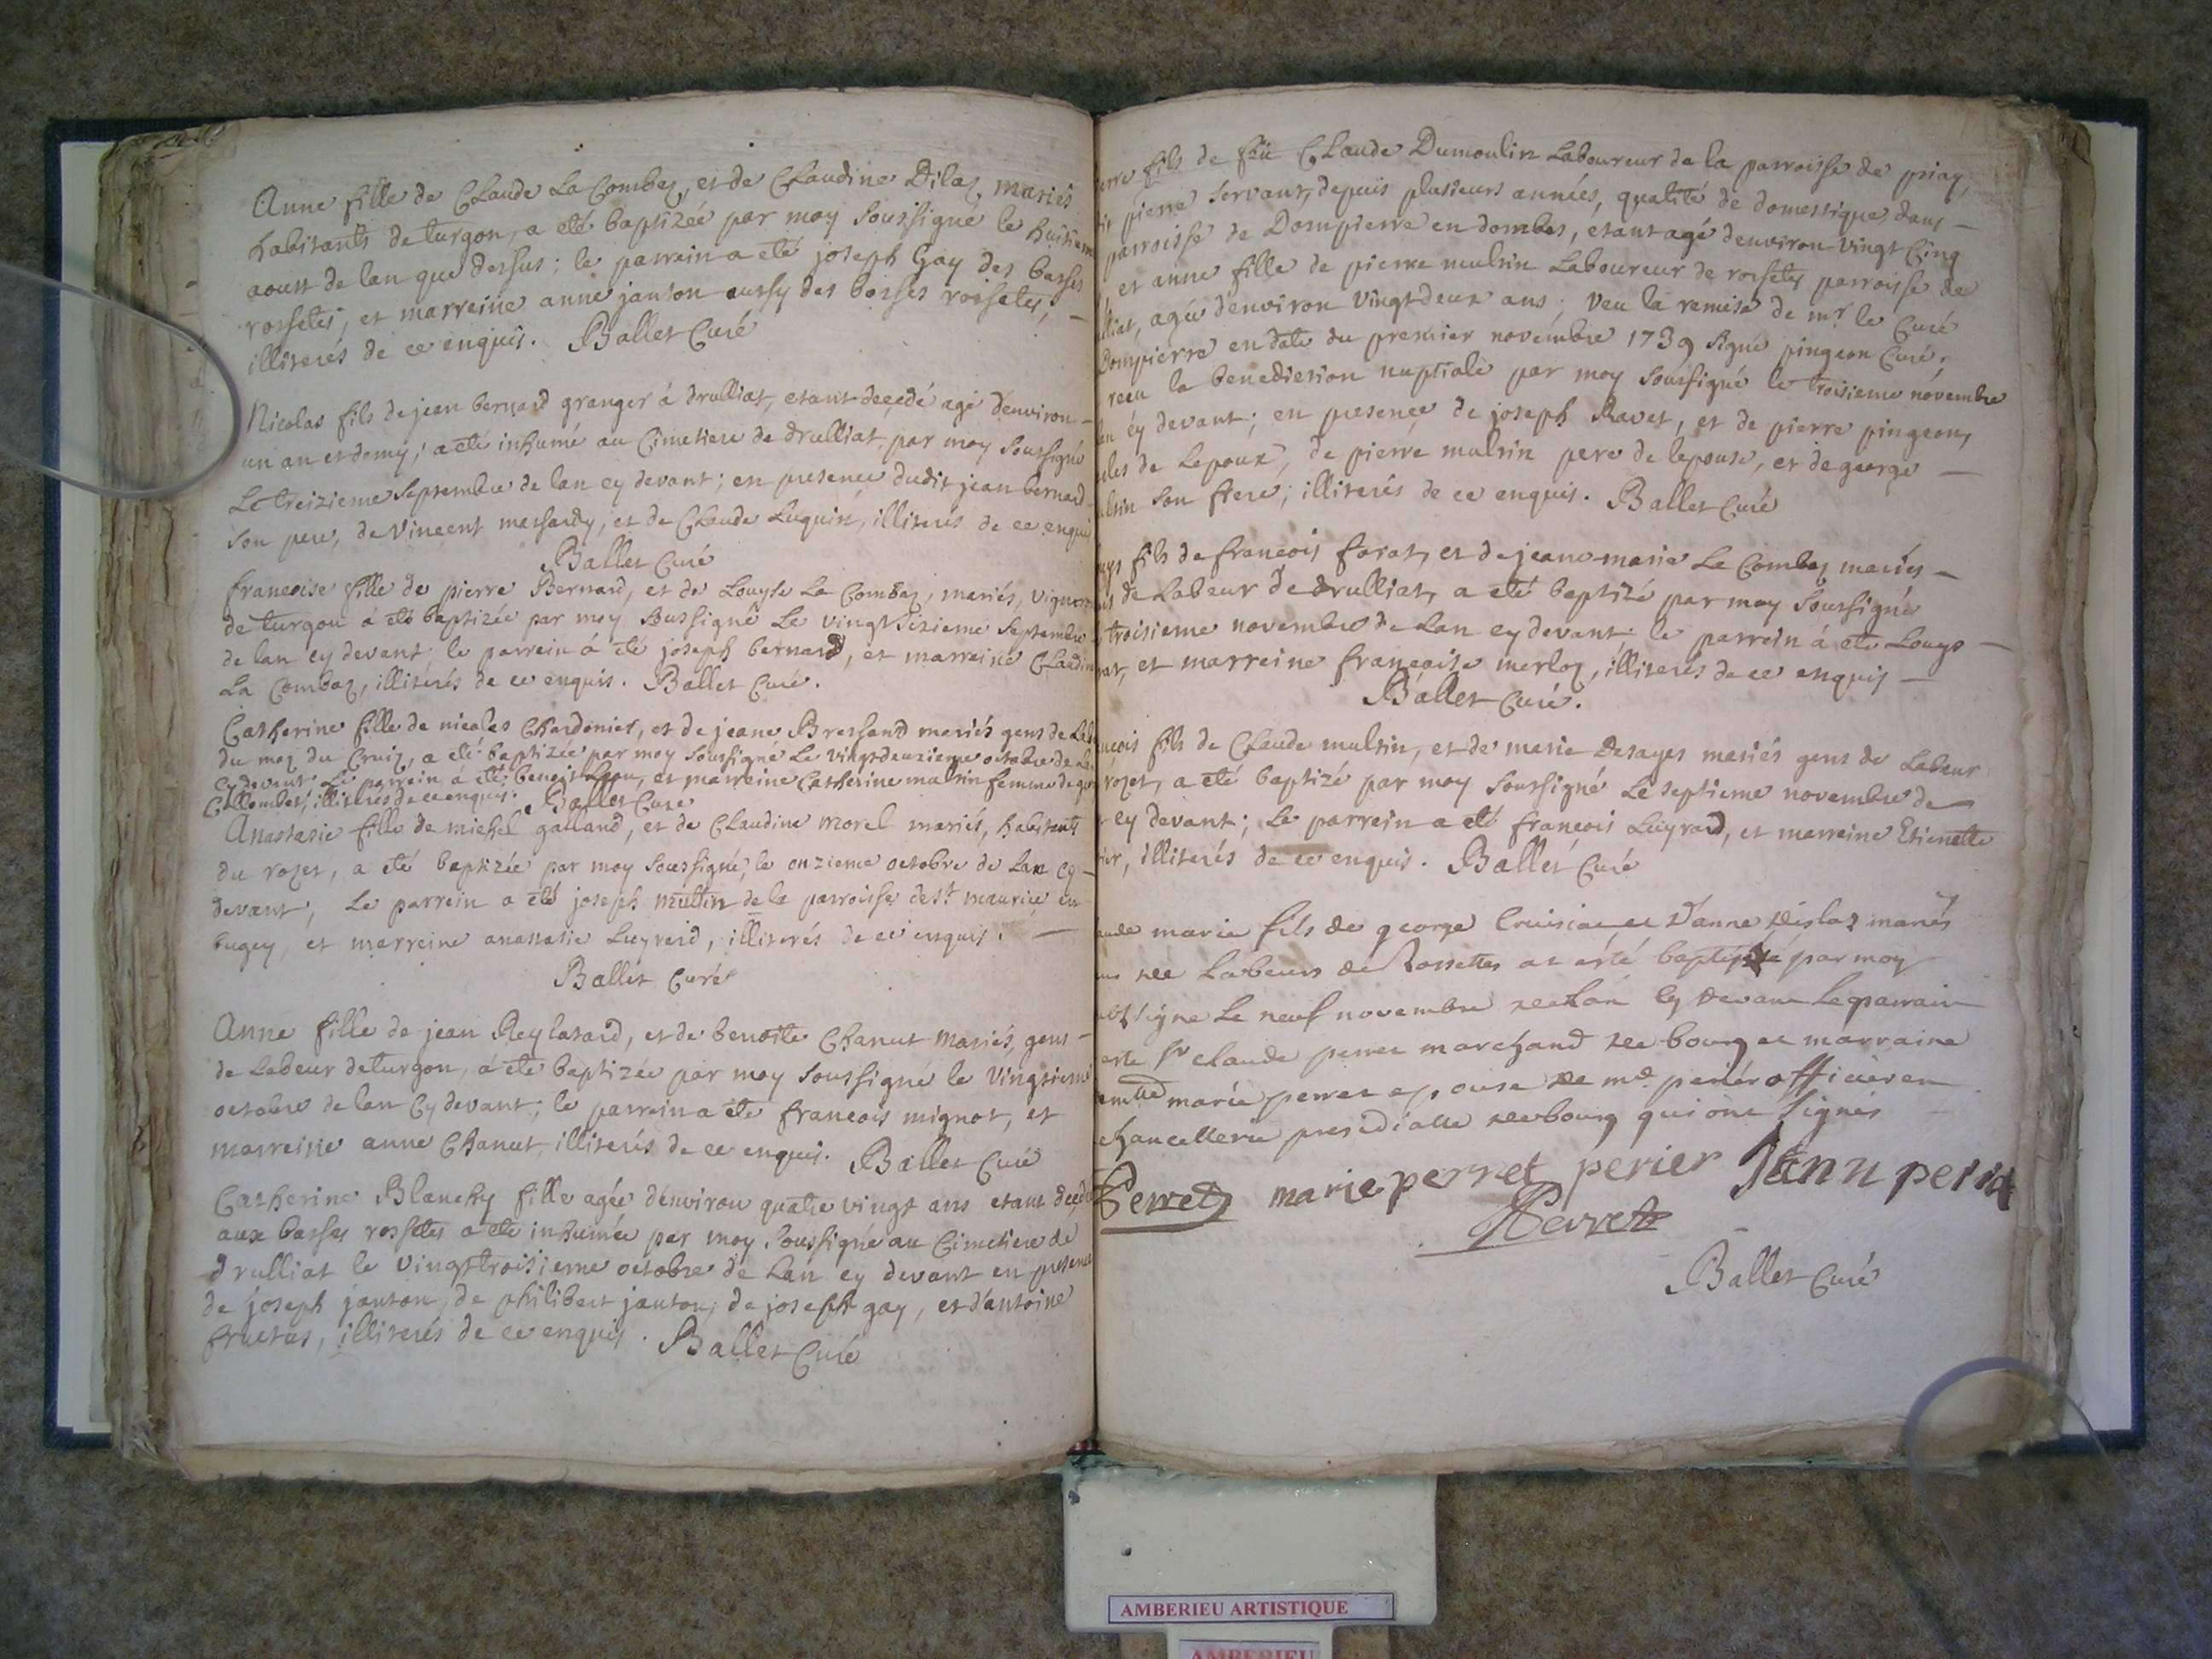 Anne fille de Claude La Combaz, et de Claudine Dilaz, mariés
habitants de turgon, a eté baptizée par moy soussigné le huitieme
aoust de lan que dessus; le parrein a eté joseph Gay des basses
rossetes, et marreine anne janton aussy des basses rossetes,
illiterés de ce enquis. Ballet Curé
Nicolas fils de jean bernard granger á drulliat, etant decedé agé denviron
un an et demy; a eté inhumé au Cimetiere de drulliat par moy soussigné
Le treizieme septembre de lan cy devant; en presence dudit jean bernard
son pere, de Vincent massardy, et de Claude Luquin, illiterés de ce enquis
Ballet Curé
francoise fille de pierre Bernard, et de Louyse La Combaz, mariés, vignerons
de turgon á eté baptizée par moy soussigné Le vingt sizieme septembre
de lan cy devant; le parrein á eté joseph bernard, et marreine Claudine
La Combaz, illiterés de ce enquis. Ballet Curé.
Catherine fille de nicolas Chardonier, et de jeane Bressand mariés gens de Labeur
du maz du Cruiz, a eté baptizée par moy soussigné Le vingtdeuxieme octobre de Lan
cy devant Le parrein á eté benoit Lyon, et marreine Catherine mulsin femme de
Collombet, illiterés de ce enquis. Ballet Curé
Anastasie fille de michel galland, et de Claudine morel mariés, habitants
du rozet, a eté baptizée par moy soussigné, le onzieme octobre de Lan cy
devant; Le parrein a eté joseph multin de la parroisse de st maurice en
bugey, et marreine anastasie Luyrard, illiterés de ce enquis.
Ballet Curé
Anne fille de jean Reylatard, et de benoite Chanut mariés, gens
de Labeur de turgon, á eté baptizée par moy soussigné le vingtieme
octobre de lan Cy devant; le parrein a eté francois mignot, et
marreine anne Chanut, illiterés de ce enquis. Ballet Curé
Catherine Blanchy fille agée denviron quatre vingt ans etant decedée
aux basses rossetes a eté inhumée par moy soussigné au Cimetiere de
drulliat le vingttroisieme octobre de Lan cy devant en presence
de joseph janton, de philibert janton, de joseph gay, et d'antoine
fruetas, illiterés de ce enquis. Ballet Curé
fils de feü Claude Dumoulin Laboureur de la parroisse de priay,
pierre servant, depuis plusieurs années, qualité de domestique dans
parroisse de Dompierre en dombes, etant agé denviron vingt Cinq
et anne fille de pierre mulsin Laboureur de rossetes parroisse de
agée denviron vingtdeux ans; veu la remise de mr. le Curé
Dompierre en date du premier novembre 1739 signé pingeon Curé,
receu la benediction nuptiale par moy soussigné le troisieme novembre
cy devant; en presence de joseph Ravet, et de pierre pingeon,
de Lepoux, de pierre mulsin pere de lepouse, et de george
son frere; illiterés de ce enquis. Ballet Curé
fils de francois forat, et de jeane-marie La Combaz mariés
de Labeur de drulliat, a eté baptizé par moy soussigné
troisieme novembre de Lan cy devant; le parrein á eté Louys
et marreine françoise merloz, illiterés de ce enquis
Ballet Curé.
fils de Claude mulsin, et de marie Desayes mariés gens de Labeur
rozet, a eté baptizé par moy soussigné Le septieme novembre de
cy devant; Le parrein a eté francois Luyrard, et marreine Etienette
illiterés de ce enquis. Ballet Curé
marie fils de george Cruisia et d'anne Dislaz mariés
de Labeurs de Rossettes at esté baptissé par moy
signe Le neuf novembre de Lan Cy devant Le parrain
Sr claude perret marchand de bourg et marraine
marie perret epouse de md. perier officier en
chancellerie presidialle de bourg qui ont signés
Perret marie perret perier
Perret
Ballet Curé
AMBERIEU ARTISTIQUE
AMBERIEU